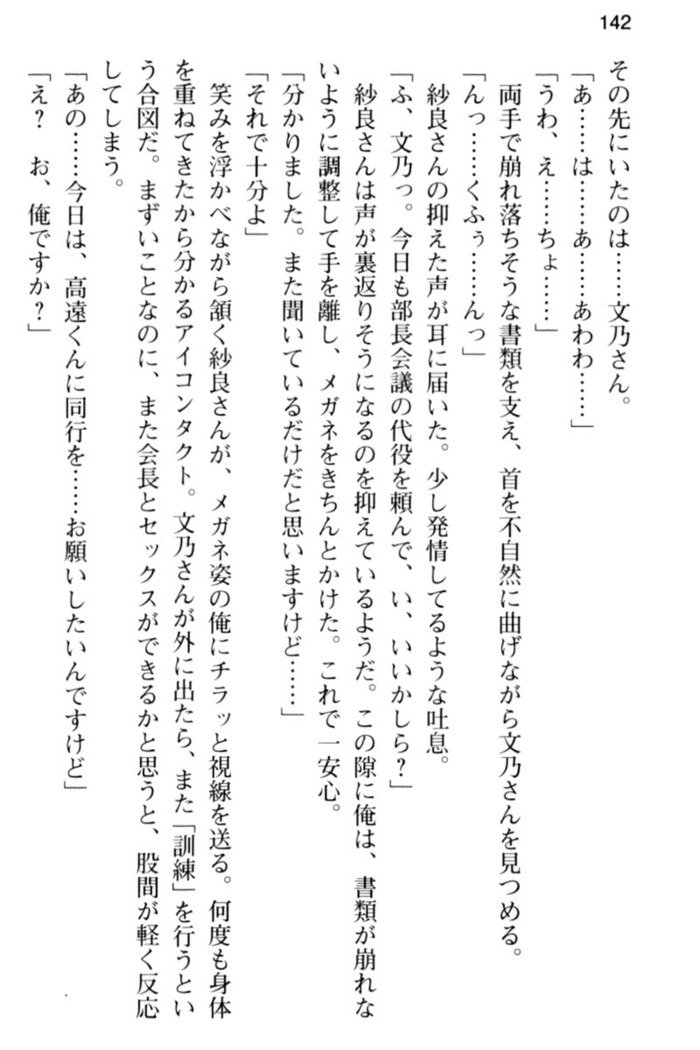 142
その先にいたのは……文乃さん。
「あ……は……あ……あわわ……」
「うわ、え……ちょ……」
両手で崩れ落ちそうな書類を支え、首を不自然に曲げながら文乃さんを見つめる。
「んっ……くふぅ……んっ」
紗良さんの抑えた声が耳に届いた。少し発情してるような吐息。
「ふ、文乃っ。今日も部長会議の代役を頼んで、い、いいかしら？」
紗良さんは声が裏返りそうになるのを抑えているようだ。この隙に俺は、書類が崩れな
いように調整して手を離し、メガネをきちんとかけた。これで一安心。
「分かりました。また聞いているだけだと思いますけど……」
「それで十分よ」
笑みを浮かべながら頷く紗良さんが、メガネ姿の俺にチラッと視線を送る。何度も身体
を重ねてきたから分かるアイコンタクト。文乃さんが外に出たら、また「訓練」を行うとい
う合図だ。まずいことなのに、また会長とセックスができるかと思うと、股間が軽く反応
してしまう。
「あの……今日は、高遠くんに同行を……お願いしたいんですけど」
「え？　お、俺ですか？」